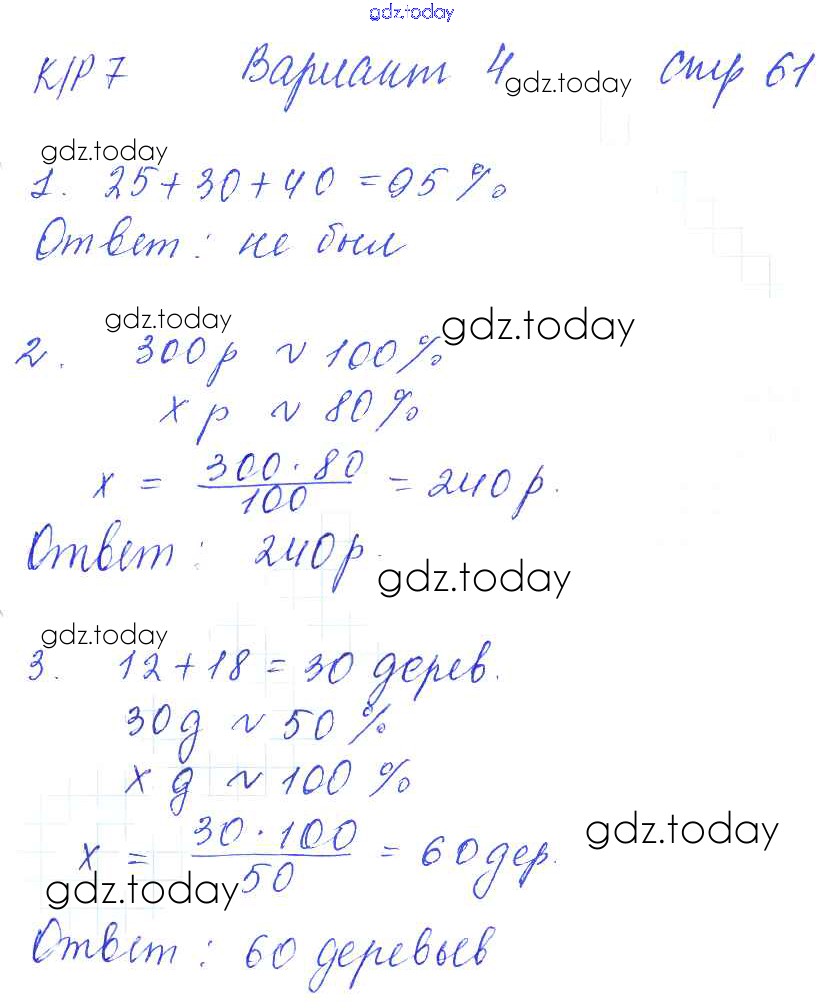 gdz.today
К/Р 7 Вариант 4 gdz.today стр 61
gdz.today
1. 25 + 30 + 40 = 95 %
Ответ : не был
gdz.today gdz.today
2. 300 р ~ 100 %
х р ~ 80 %
х = 300 · 80 / 100 = 240 р.
Ответ : 240 р.
gdz.today
gdz.today
3. 12 + 18 = 30 дерев.
30 д ~ 50 %
х д ~ 100 %
х = 30 · 100 / 50 = 60 дер.
gdz.today
gdz.today
Ответ : 60 деревьев